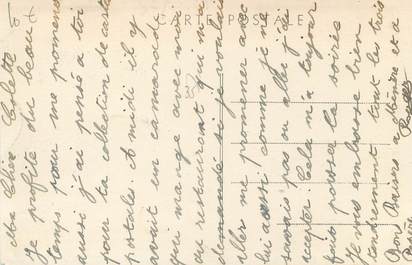 CARTE POSTALE
Ma chère Colette
Je profite du beau
temps pour me promener
aussi j'ai pensé à toi
pour ta collection de carte
postales. A midi il y
avait un camarade
qui mange avec moi
au restaurant qui m'a
demandé si je voulais
aller me promener avec
lui aussi comme je ne
savais pas ou aller j'ai
accepter. Cela m'a toujour
fait passer la soirée
Je vous embrasse bien
tendrement tout les trois
Bons Baisers a et a